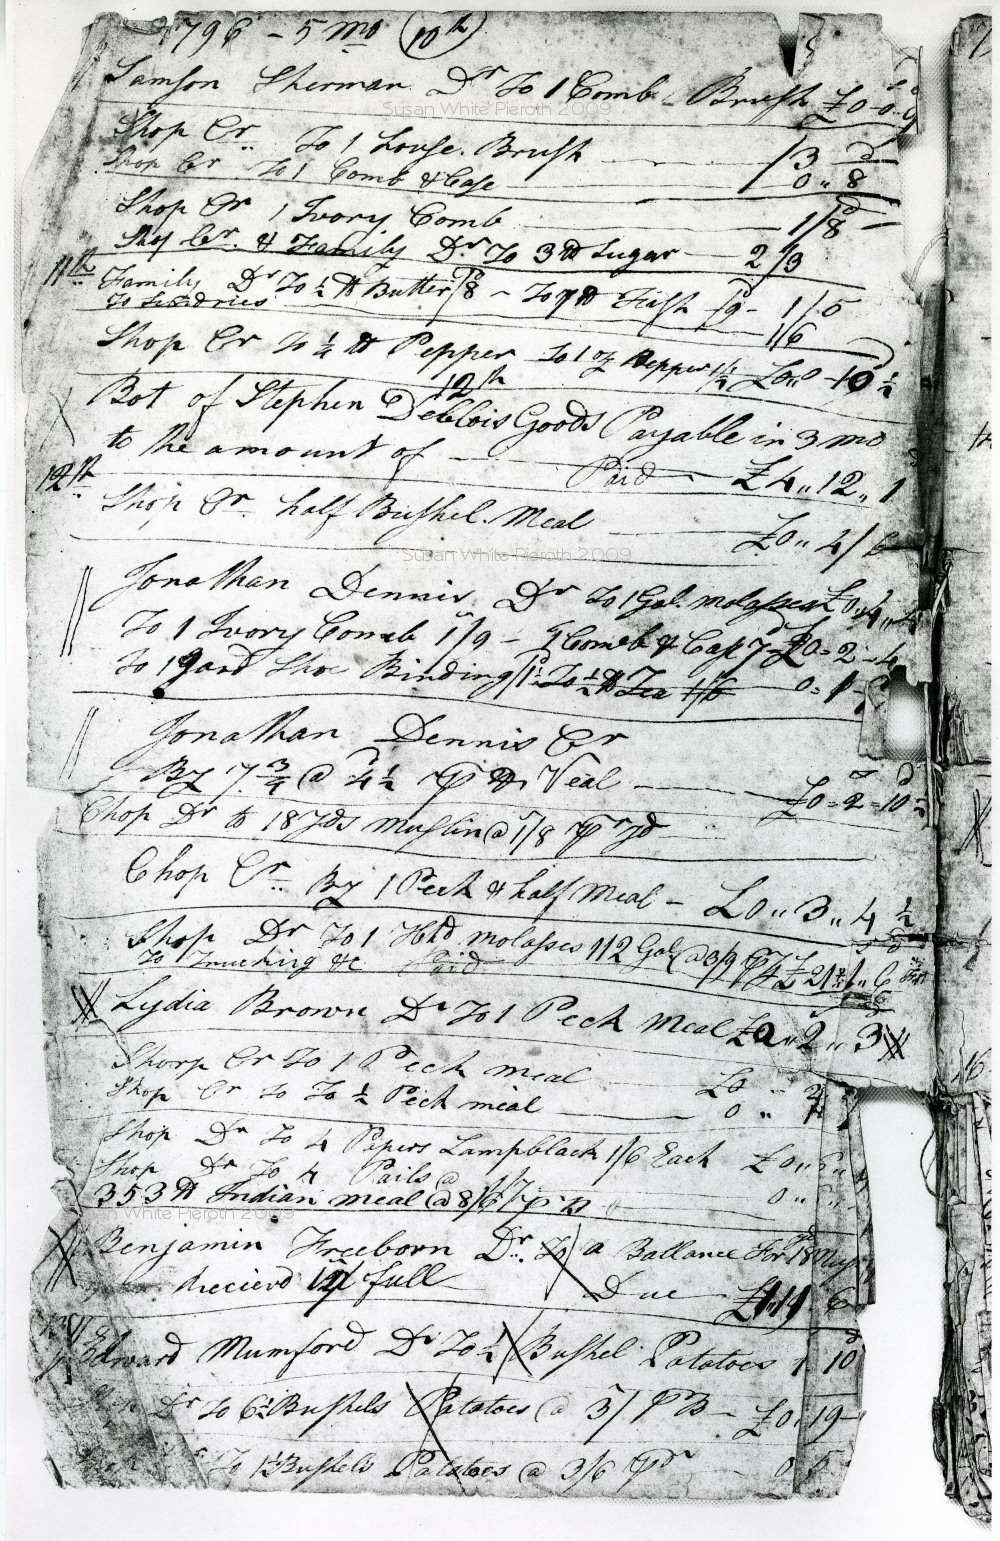 1796 - 5 mo (10th)
Samson Sherman Dr To 1 Comb Brush £0"0"9
Susan White Pieroth 2009
Shop Cr To 1 house Brush 1/3
Shop Cr To 1 Comb & Case 0"8
Shop Cr 1 Ivory Comb 1/8
Shop Cr. & Family Dr To 3 lb Sugar 2/3
11th Family Dr To ½ lb Butter /8 - To 7 lb Fish /9 - 1/5
To Sundries 1/6
Shop Cr To ¼ lb Pepper To 1 oz Pepper 1½ £0"0-10½
12th
Bot of Stephen Deblois Goods Payable in 3 mo
to the amount of Paid £4"12"1
12th
Shop Cr half Bushel Meal £0"4/6
Susan White Pieroth 2009
Jonathan Dennis Dr To 1 Gal. molasses £0"4"
To 1 Ivory Comb 1/9 - 1 Comb & Case 7 £0=2=4
To 1 yard Shoe Binding /1½ To ½ lb Tea 1/6 0=1
Jonathan Dennis Cr
By 7¾ @ 4½ pr lb Veal £0=2=10½
Shop Dr to 18 yds muslin @ 1/8 pr yd
Shop Cr By 1 Peck & half Meal - £0"3"4½
Shop Dr To 1 Hhd molasses 112 Gal @ 3/9 £21"
To Trucking &c Paid
Lydia Brown Dr To 1 Peck Meal £0"2"3
Shop Cr To 1 Peck meal £0"2
Shop Cr To To ½ Peck meal 0"1
Shop Dr To 4 Papers Lampblack 1/6 Each £0"6"
Shop Dr To 4 Pails @ 0"
353 lb Indian meal @ 8/6
Susan White Pieroth 2009
Benjamin Freeborn Dr. To a Ballance For 18
Recievd in full Due
Edward Mumford Dr To ½ Bushel Potatoes 1 10
Dr To 6½ Bushels Potatoes @ 3/ pr B - £0"19
To 1½ Bushels Potatoes @ 3/6 pr 0 5